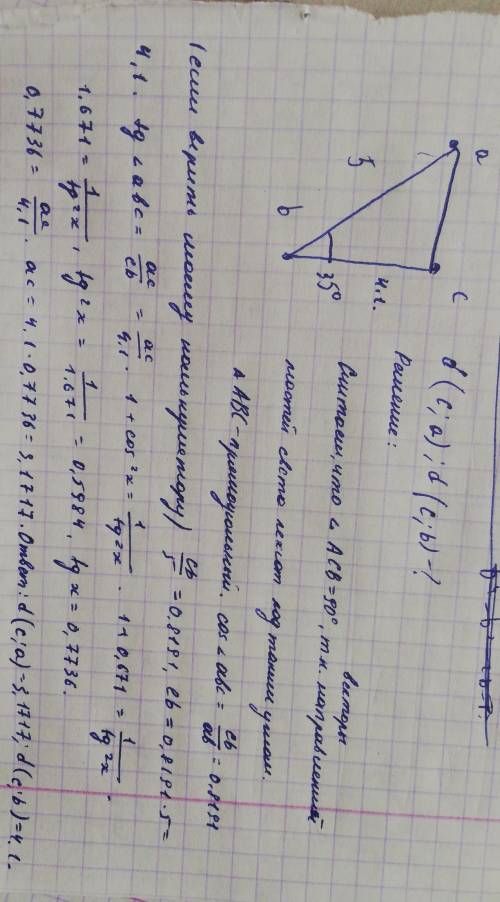 a
5
b
35°
4.1.
c
d(c;a); d(c;b)-?
Решение:
Считаем, что ∠ACB=90°, т.к. направлений
векторы
лежат под таким углом.
△ABC-прямоугольный. cos∠abc = cb/ab = 0.8191
(если верить моему калькулятору) cb/5 = 0.8191, cb = 0,8191·5 =
4,1. tg∠abc = ac/cb = ac/4.1. 1+cos²x = 1/tg²x. 1+0,671 = 1/tg²x.
1.671 = 1/tg²x, tg²x = 1/1.671 = 0,5984, tg x = 0,7736.
0,7736 = ac/4.1. ac = 4.1·0,7736 = 3,1717. Ответ: d(c;a)-3,1717; d(c;b)=4,1.